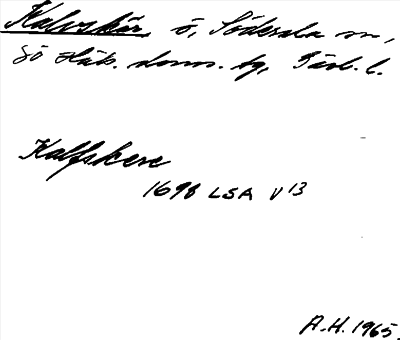 Kalvskär, ö, Söderala sn,
Sö Häls. doms. tg, Gävl. l.
Kalfskere
1698 LSA V 13
A.H. 1965.